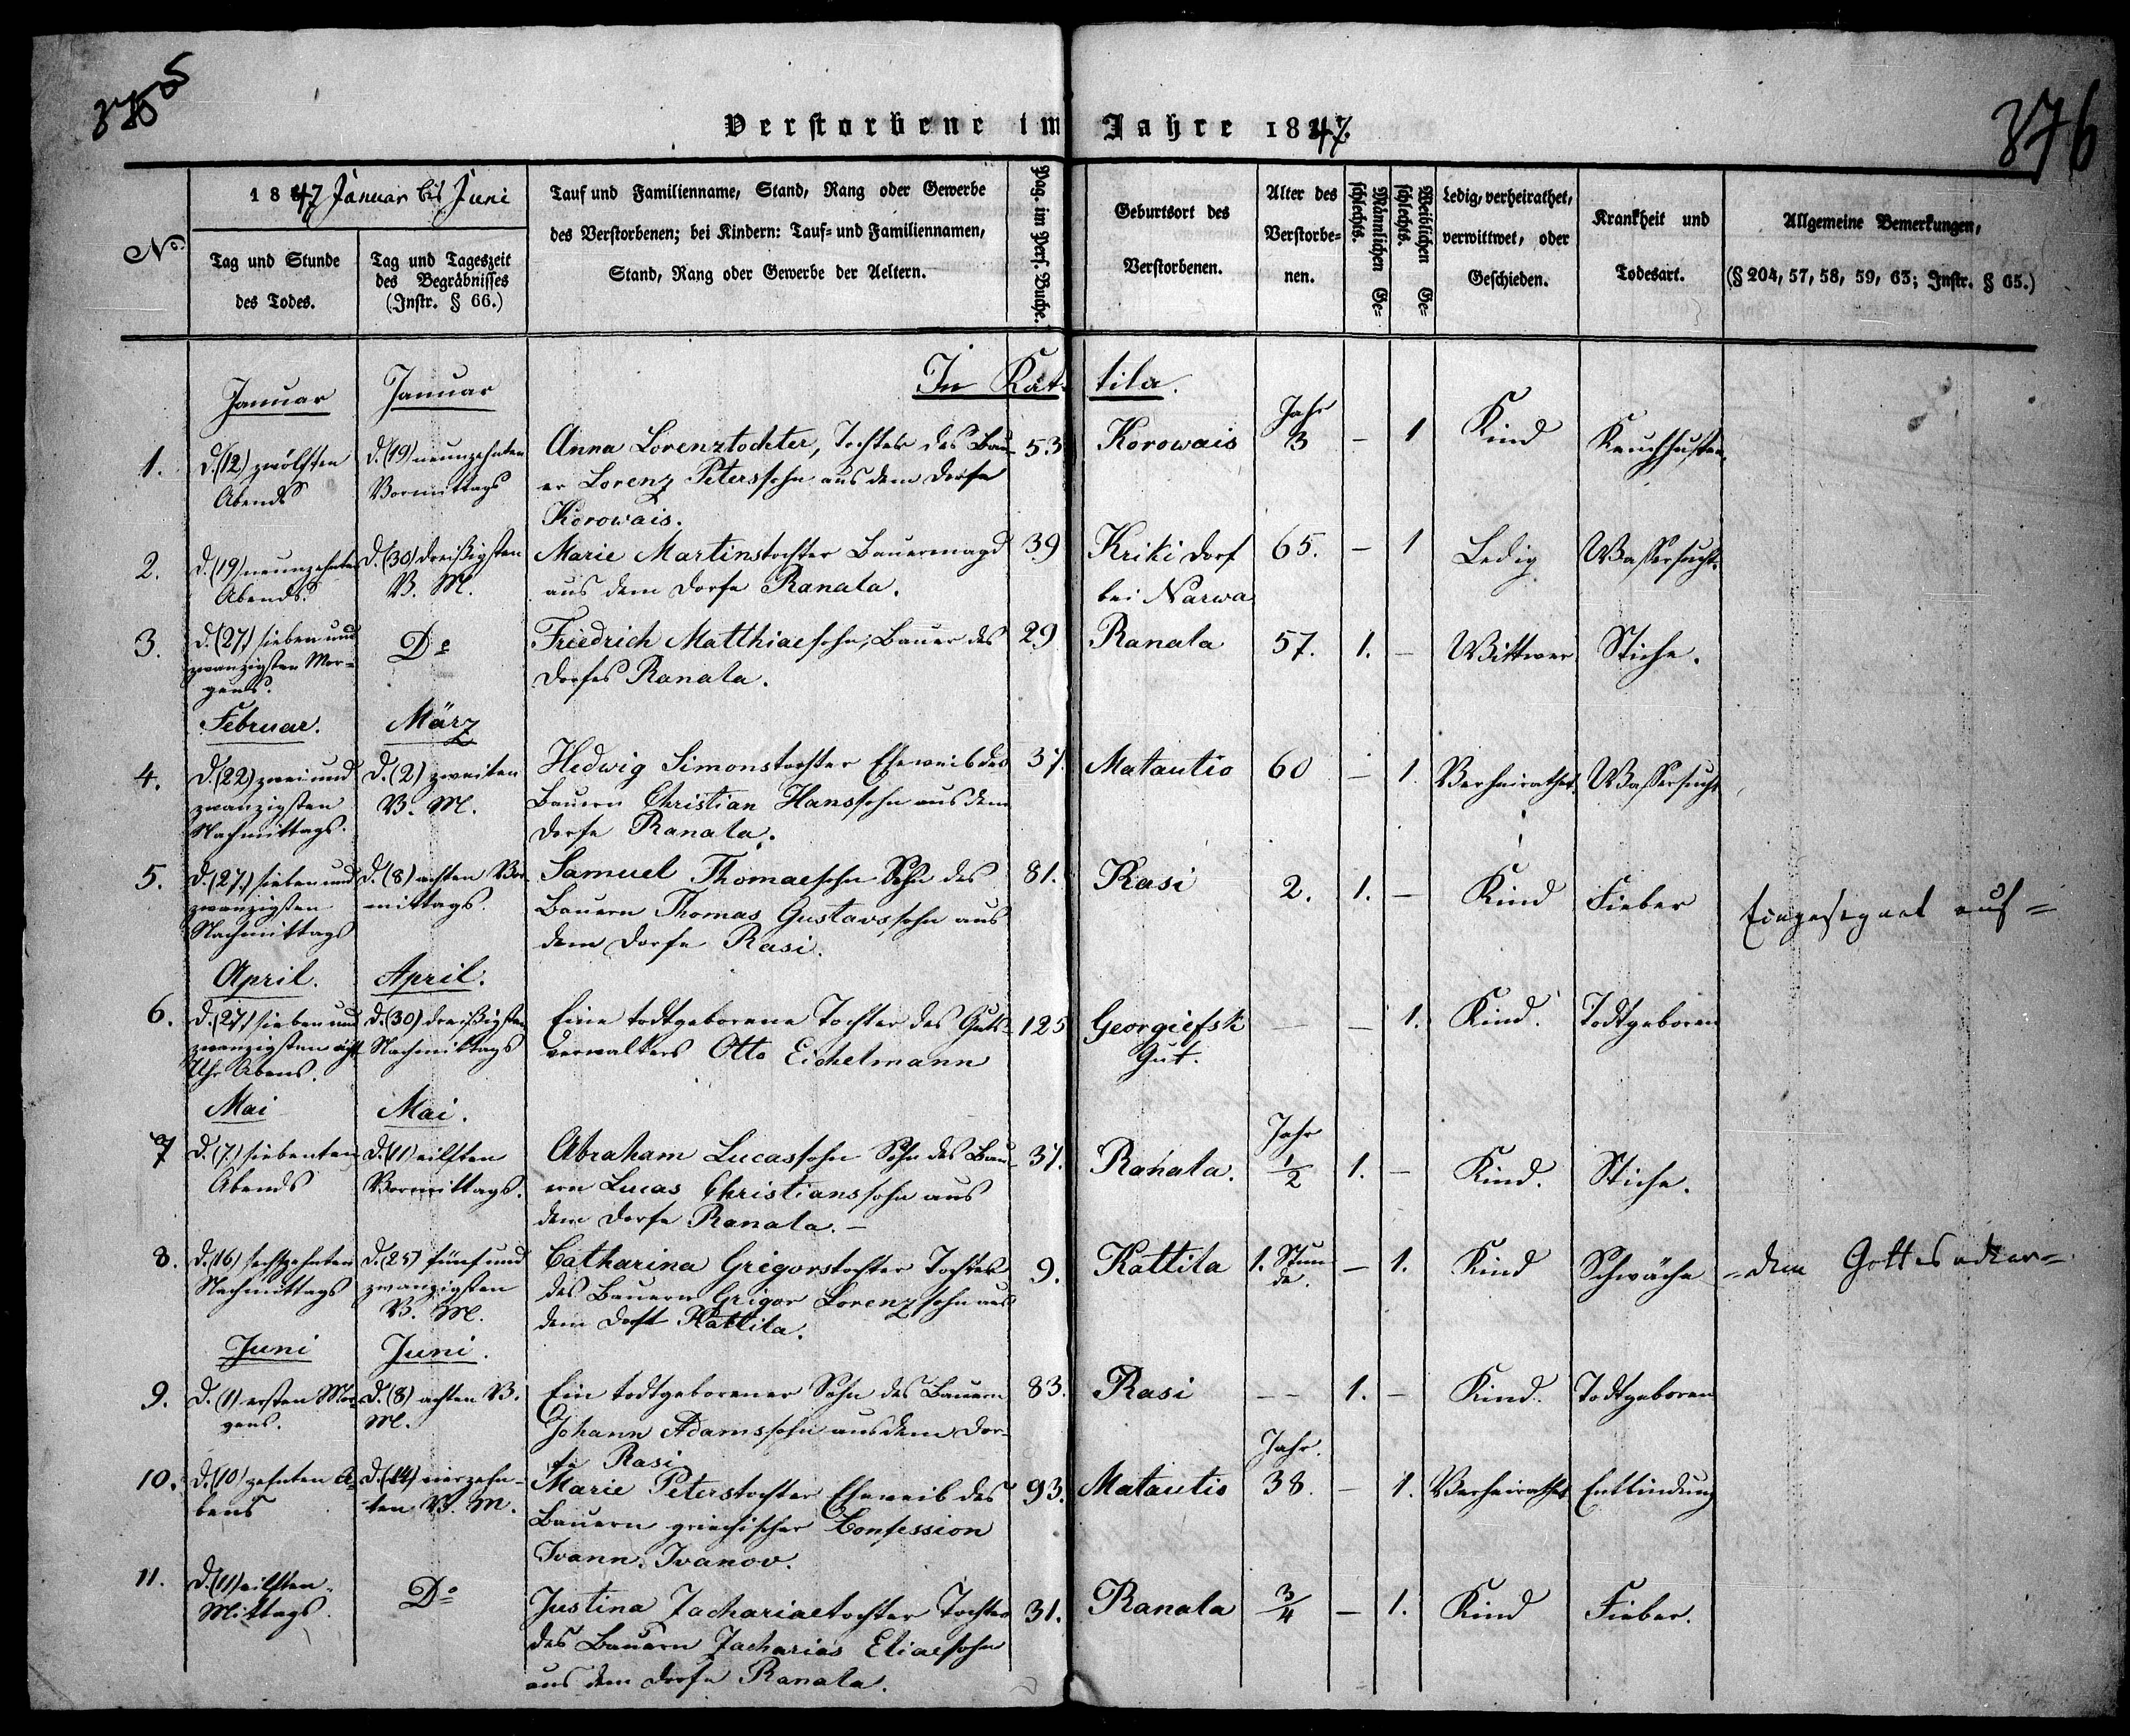 376
Verstorbene im Jahre 1847.
No.
1847 Januar bis Juni
Tag und Stunde
des Todes.
Tag und Tageszeit
des Begräbnisses
(Instr. § 66.)
Tauf und Familienname, Stand, Rang oder Gewerbe
des Verstorbenen; bei Kindern: Tauf- und Familiennamen,
Stand, Rang oder Gewerbe der Aeltern.
Pag. im Pers. Buche.
Geburtsort des
Verstorbenen.
Alter des
Verstorbe-
nen.
Männlichen Ge-
schlechts.
Weiblichen Ge-
schlechts.
Ledig, verheirathet,
verwittwet, oder
Geschieden.
Krankheit und
Todesart.
Allgemeine Bemerkungen,
(§ 204, 57, 58, 59, 63; Instr. § 65.)
In Kat- tila.
Januar
Januar
1.
D. (12) zwölften
Abends
D. (19) neunzehnten
Vormittags
Anna Lorenztochter, Tochter des Bau-
er Lorenz Peterssohn aus dem Dorfe
Korowais.
53
Korowais
Jahr
3
–
1
Kind
Keuchhusten.
2.
D. (19) neunzehnten
Abends.
D. (30) dreißigsten
V. M.
Marie Martinstochter Bauermagd
aus dem Dorfe Ranala.
39
Kriki Dorf
bei Narwa
65.
–
1
Ledig
Wassersucht.
3.
D. (27) sieben und
zwanzigsten Mor-
gens.
Do
Friedrich Matthiaesohn, Bauer des
Dorfes Ranala.
29
Ranala
57.
1.
–
Wittwer
Stiche.
Februar.
März
4.
D. (22) zwei und
zwanzigsten
Nachmittags.
D. (2) zweiten
V. M.
Hedwig Simonstochter Eheweib des
Bauern Christian Hanssohn aus dem
Dorfe Ranala.
37.
Matautio
60
–
1.
Verheirathet.
Wassersucht
5.
D. (27.) sieben und
zwanzigsten
Nachmittags
D. (8) achten Vor-
mittags.
Samuel Thomaesohn Sohn des
Bauern Thomas Gustavssohn aus
dem Dorfe Rasi.
81.
Rasi
2.
1.
–
Kind
Fieber
Eingesegnet auf =
April.
April.
6.
D. (27) sieben und
zwanzigsten acht
Uhr Abens.
D. (30) dreißigsten
Nachmittags
Eine todtgeborene Tochter des Guts-
verwalters Otto Eichelmann
125
Georgiefsk
Gut.
–
–
1.
Kind.
Todtgeboren
Mai
Mai.
7
D. (7.) siebenten
Abends
D. (11) eilften
Vormittags.
Abraham Lucassohn Sohn des Bau-
ern Lucas Christianssohn aus
dem Dorfe Ranala. –
37.
Ranala.
Jahr
1/2
1.
–
Kind.
Stiche.
8.
D. (16) sechszehnten
Nachmittags
D. (25) fünf und
zwanzigsten
V. M.
Catharina Grigorstochter Tochter
des Bauern Grigor Lorenzsohn aus
dem Dorfe Kattila.
9.
Kattila
1. Stun
de.
–
1.
Kind
Schwäche
= dem Gottesacker =
Juni
Juni.
9.
D. (1) ersten Mor-
gens.
D. (8) achten V.
M.
Ein todtgeborener Sohn des Bauern
Johann Adamssohn aus dem Dor-
fe Rasi
83.
Rasi
– –
1.
–
Kind.
Todtgeboren
10.
D. (10) zehnten A-
bens
D. (14) vierzehn-
ten V. M.
Marie Peterstochter Eheweib des
Bauern griechischer Confession
Ivann. Ivanov.
93.
Matautio
Jahr.
38.
–
1.
Verheirathet
Entbindung
11.
D. (11) eilften
Mittags.
Do
Justina Zachariaetochter Tochter
des Bauern Zacharias Eliaesohn
aus dem Dorfe Ranala.
31.
Ranala
3/4
–
1.
Kind
Fieber.